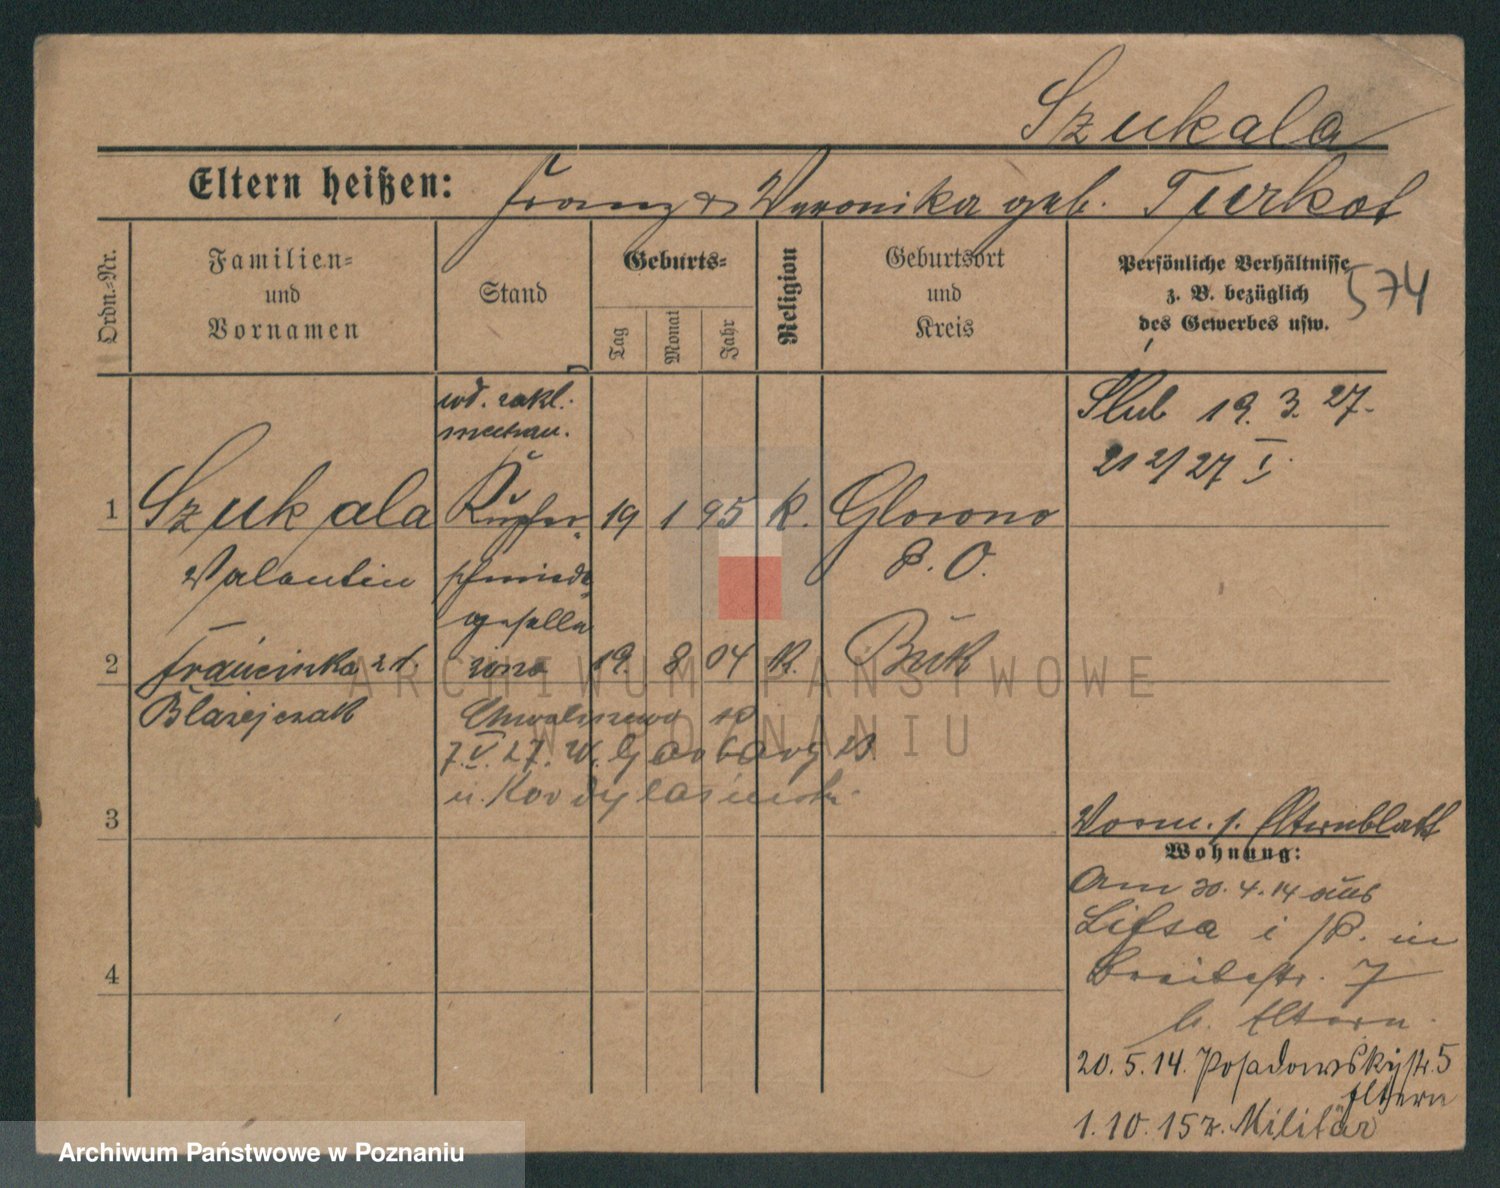 Szukala
Eltern heißen: Franz & Veronika geb. Turkot
Ordn.=Nr.
Familien=
und
Vornamen
Stand
Geburts=
Tag
Monat
Jahr
Religion
Geburtsort
und
Kreis
Persönliche Verhältnisse
z. B. bezüglich
des Gewerbes usw.
574
wł. zakł.
mechan.
Ślub 19. 3. 27.
212/27 I.
1 Szukala Kupfer 19 1 95 K. Glowno
Valentin schmiede P. O.
geselle
2 Franciszka z d. żona 19. 8. 04 K. Buk
Błażejczak
Chwaliszewo
7. V. 27. W. Garbary
u. Kordylasińsk
3
Vorm. s. Elternblatt
Wohnung:
Am 30. 4. 14 aus
Lissa i /P. in
Breitestr. 7
b. Eltern.
4
20. 5. 14. Posadowskystr. 5
Eltern
1. 10. 15 z. Militär
ARCHIWUM PAŃSTWOWE
W POZNANIU
Archiwum Państwowe w Poznaniu